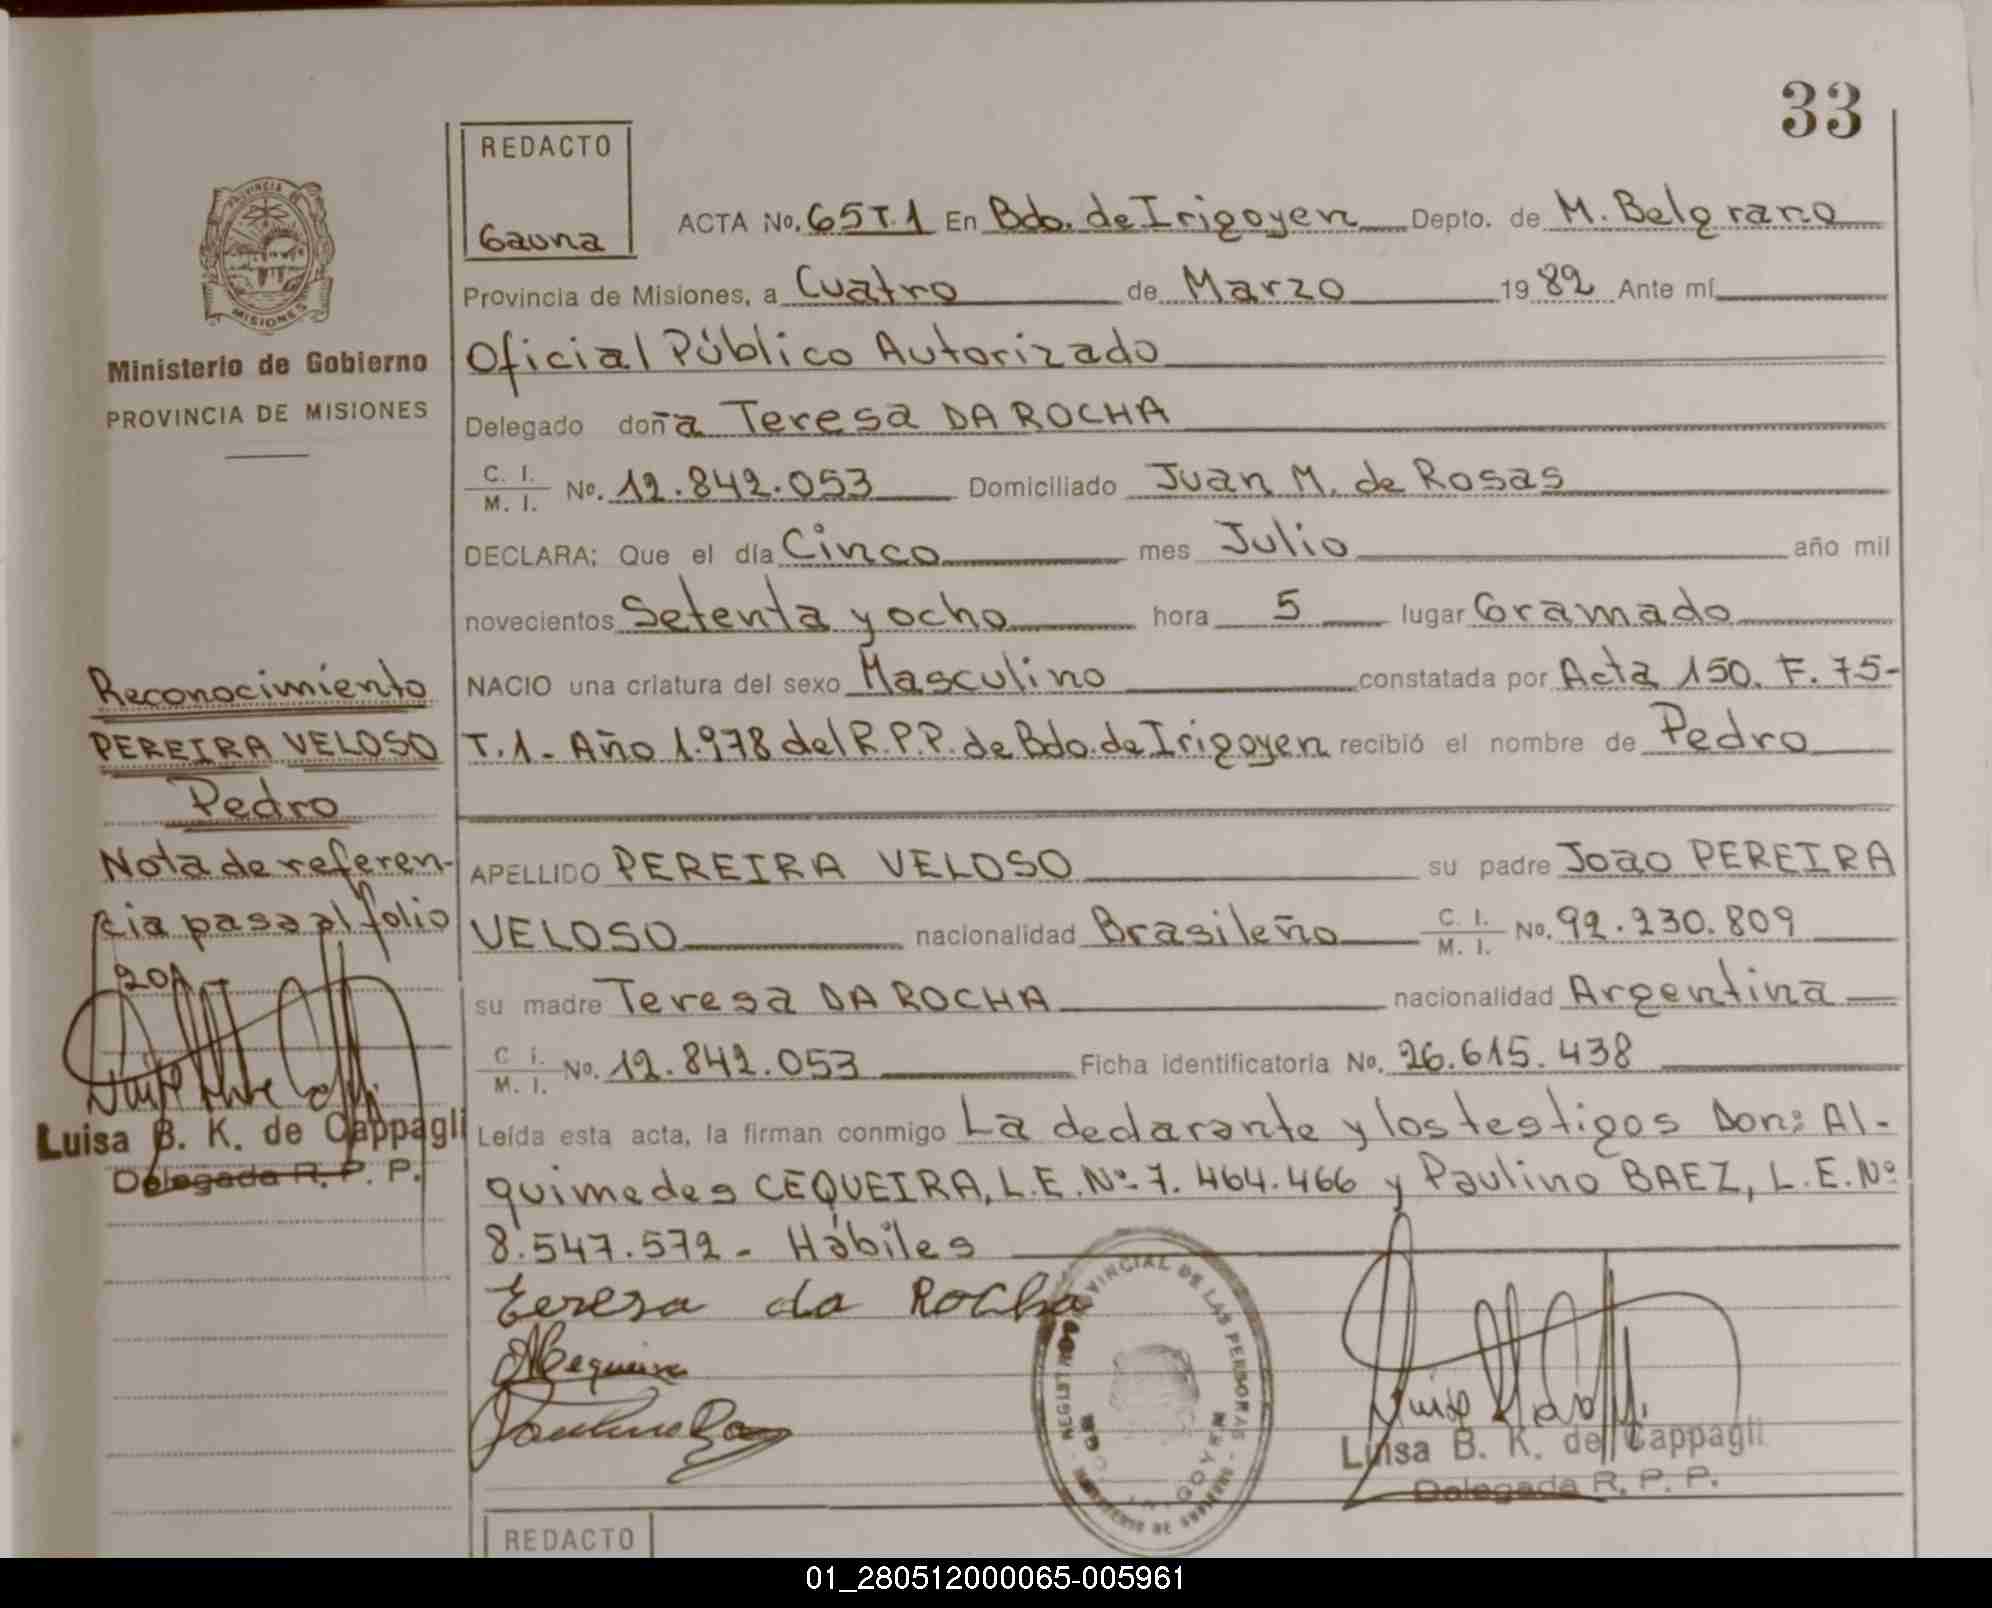 33
REDACTO
Gauna
ACTA No. 65T.1 En Bdo. de Irigoyen Depto. de M. Belgrano
Provincia de Misiones, a Cuatro de Marzo 1982 Ante mí
Oficial Público Autorizado
Delegado doña Teresa DA ROCHA
C. I. / M. I. No. 12.842.053 Domiciliado Juan M. de Rosas
DECLARA: Que el día Cinco mes Julio año mil
novecientos Setenta y ocho hora 5 lugar Gramado
NACIO una criatura del sexo Masculino constatada por Acta 150. F. 75-
T.1- Año 1.978 del R.P.P. de Bdo. de Irigoyen recibió el nombre de Pedro
APELLIDO PEREIRA VELOSO su padre Joao PEREIRA
VELOSO nacionalidad Brasileño C. I. / M. I. No. 92.230.809
su madre Teresa DA ROCHA nacionalidad Argentina
C. I. / M. I. No. 12.842.053 Ficha identificatoria No. 26.615.438
Leída esta acta, la firman conmigo La declarante y los testigos Don: Al-
quimedes CEQUEIRA, L.E. Nº 7.464.466 y Paulino BAEZ, L.E. Nº
8.547.572- Hábiles
Teresa da Rocha
REGISTRO PROVINCIAL DE LAS PERSONAS
MINISTERIO DE GOBIERNO
Luisa B. K. de Cappagli
Delegada R. P. P.
REDACTO
PROVINCIA DE
MISIONES
Ministerio de Gobierno
PROVINCIA DE MISIONES
Reconocimiento
PEREIRA VELOSO
Pedro
Nota de referen-
cia pasa al folio
201
Luisa B. K. de Cappagli
Delegada R. P. P.
01_280512000065-005961